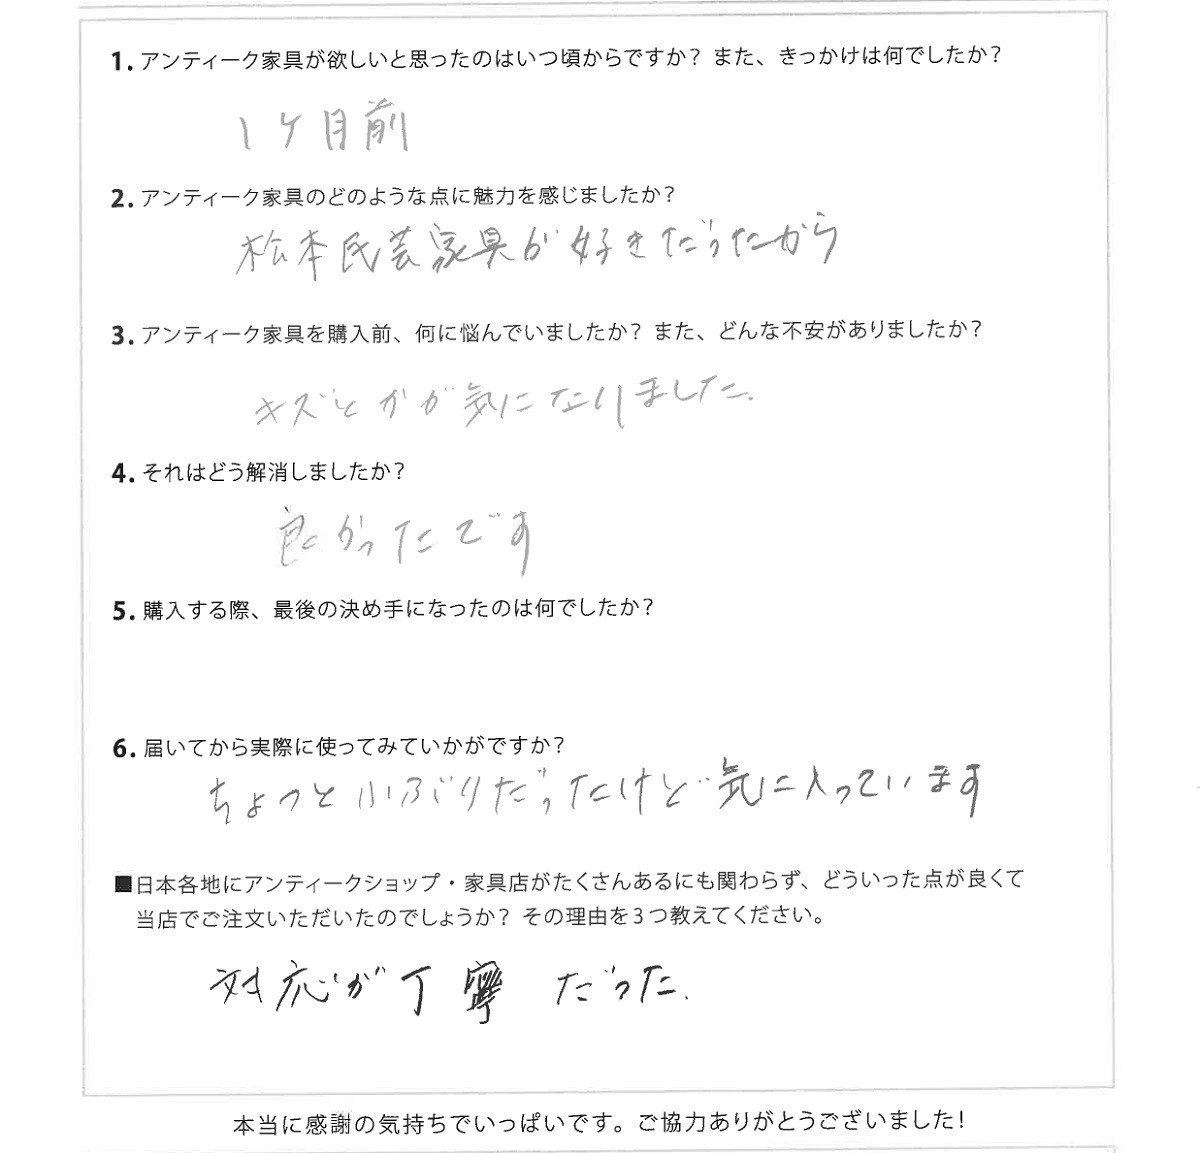 1. アンティーク家具が欲しいと思ったのはいつ頃からですか？ また、きっかけは何でしたか？
1ヶ月前
2. アンティーク家具のどのような点に魅力を感じましたか？
松本民芸家具が好きだったから
3. アンティーク家具を購入前、何に悩んでいましたか？ また、どんな不安がありましたか？
キズとかが気になりました.
4. それはどう解消しましたか？
良かったです
5. 購入する際、最後の決め手になったのは何でしたか？
6. 届いてから実際に使ってみていかがですか？
ちょっと小ぶりだったけど気に入っています
■日本各地にアンティークショップ・家具店がたくさんあるにも関わらず、どういった点が良くて
当店でご注文いただいたのでしょうか？ その理由を3つ教えてください。
対応が丁寧だった.
本当に感謝の気持ちでいっぱいです。ご協力ありがとうございました！